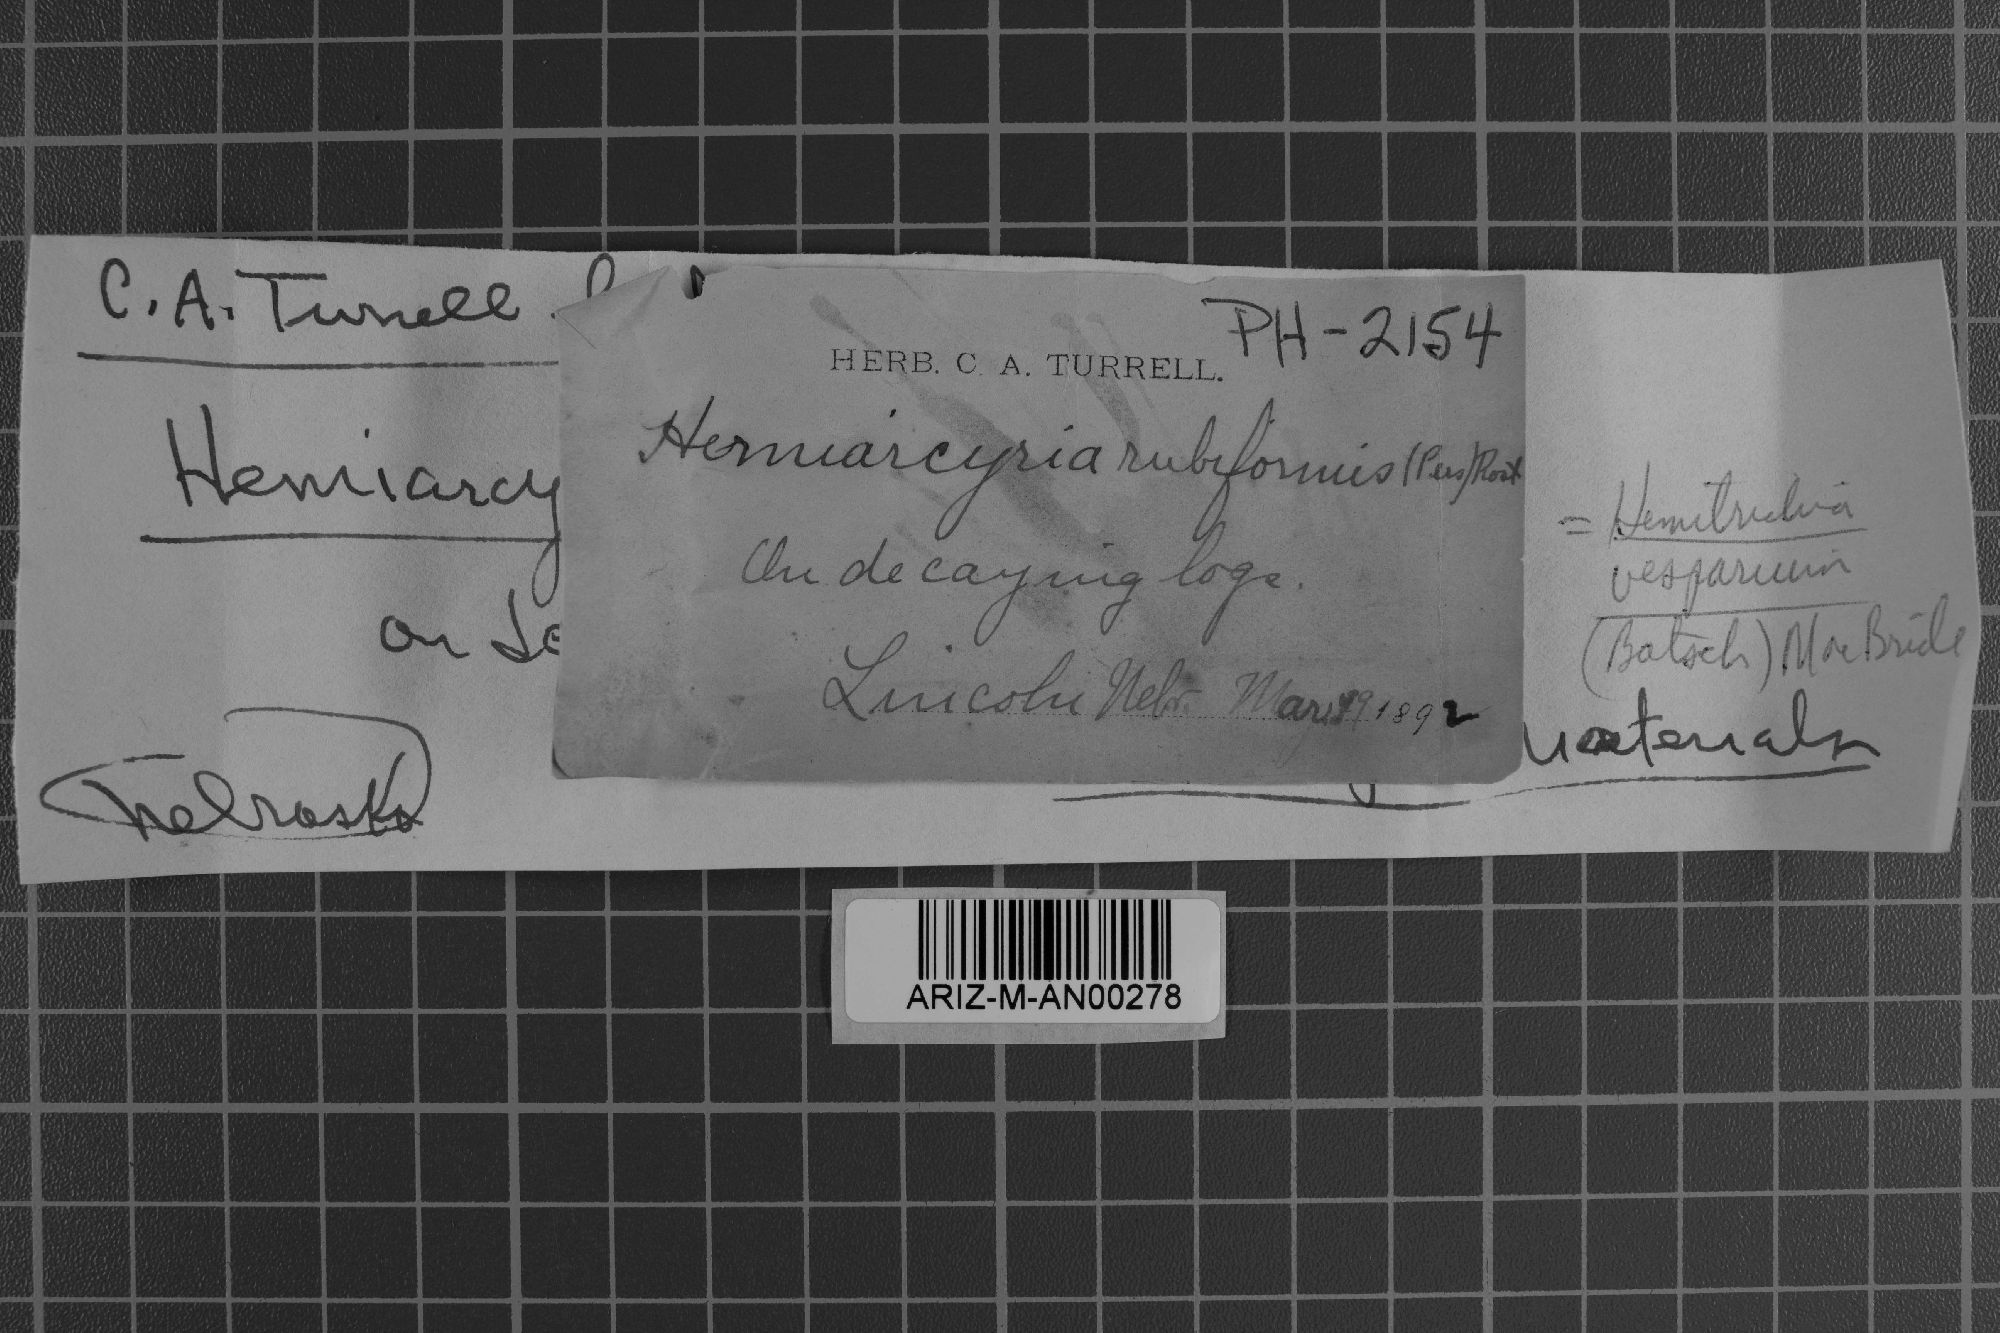 C. A. Turrell
PH-2154
HERB. C. A. TURRELL.
Hemiarcyria rubiformis (Pers) Rost
On decaying logs.
Lincoln Nebr. 1892
Hemiarcy
on
Nebraska
= Hemitrichia
vesparium
(Batsch) MacBride
materials
ARIZ-M-AN00278